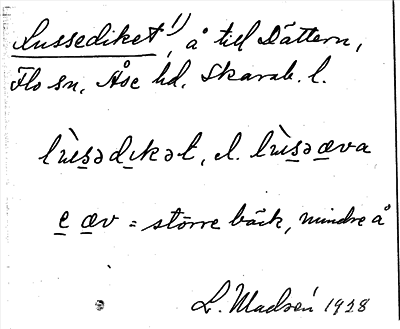 Lussediket¹⁾, å till Dättern,
Flo sn, Åse hd. Skarab. l.
lùsədıkət, el. lùsəæva
e æv = större bäck, mindre å
L. Madsén 1928